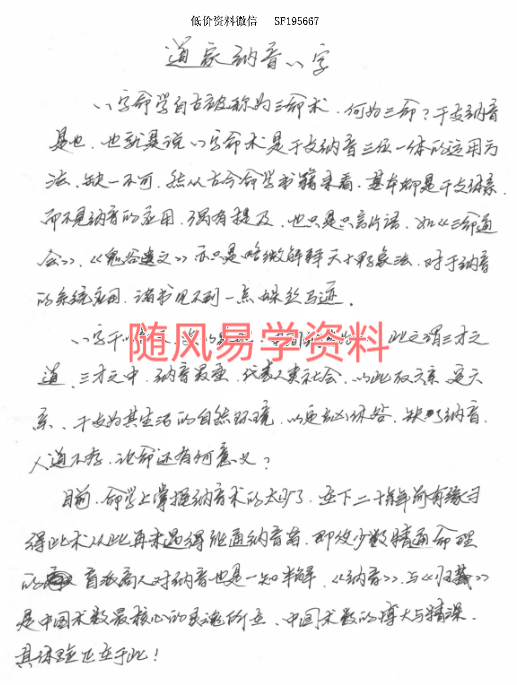 低价资料微信 SF195667
道家纳音八字
八字命学自古被称为三命术，何为三命？干支纳音
是也，也就是说八字命术是干支纳音三位一体的运用方
法，缺一不可，然从古今命学书籍来看，基本都是干支体系，
而不见纳音的应用，偶有提及，也只是只言片语，如《三命通
会》、《鬼谷遗文》亦只是略微解释天干形象法，对于纳音
的系统应用，诸书见不到一点蛛丝马迹。
八字干 此之谓三才之
随风易学资料
道，三才之中，纳音最重，代表人类社会，以此放天系
系、干支为其生活的自然环境，以定吉凶休咎，缺少纳音，
人道不存，论命还有何意义？
目前，命学上掌握纳音术的太少了，在下二十年前有缘习
得此术从此再未遇得能通纳音者，即使少数精通命理
的 盲派高人对纳音也是一知半解，《纳音》与《归藏》
是中国术数最核心的灵魂所在，中国术数的博大与精深，
具体验证在于此！